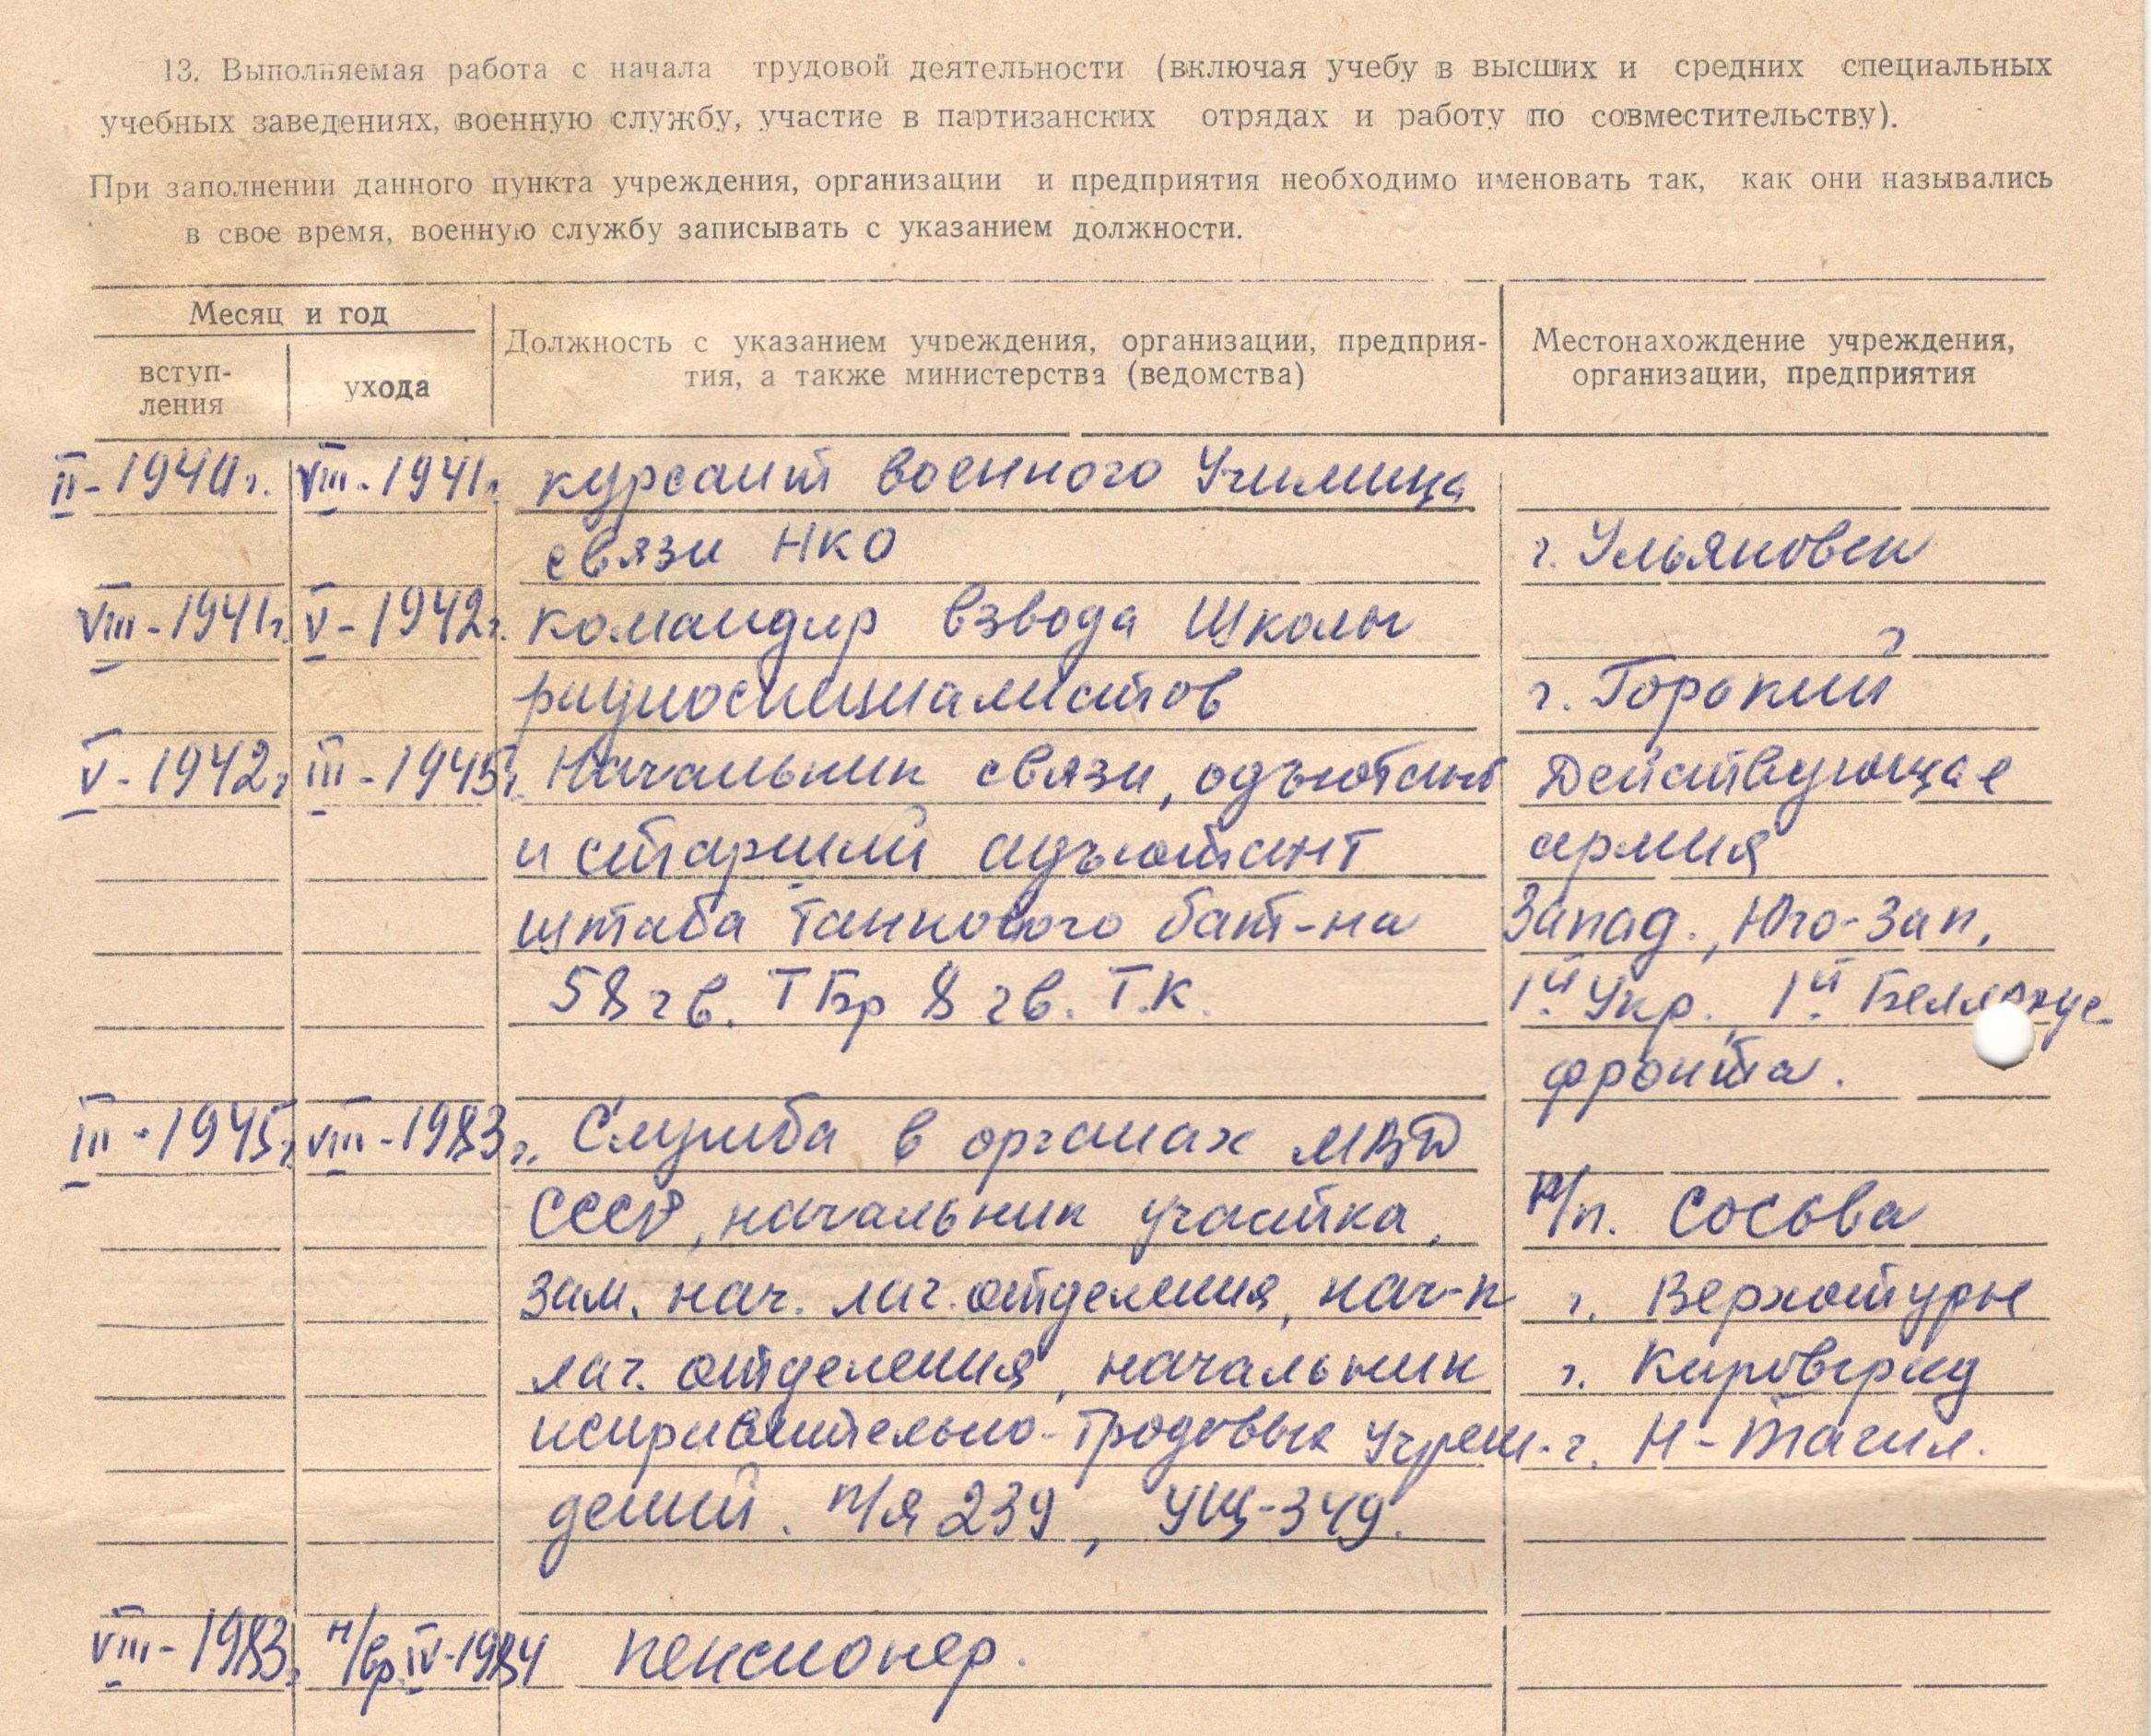 13. Выполняемая работа с начала трудовой деятельности (включая учебу в высших и средних специальных
учебных заведениях, военную службу, участие в партизанских отрядах и работу по совместительству).
При заполнении данного пункта учреждения, организации и предприятия необходимо именовать так, как они назывались
в свое время, военную службу записывать с указанием должности.
Месяц и год
вступ-
ления
ухода
Должность с указанием учреждения, организации, предприя-
тия, а также министерства (ведомства)
Местонахождение учреждения,
организации, предприятия
II-1940г. VIII-1941г. курсант военного Училища
связи НКО г. Ульяновск
VIII-1941г. V-1942г. командир взвода Школы
радиоспециалистов г. Горький
V-1942г. III-1945г. Начальник связи, адъютант Действующая
и старший адъютант армия
штаба танкового бат-на Запад., Юго-Зап,
58 гв. ТБр 8 гв. Т.К. 1й Укр., 1й
фронта.
III-1945г. VIII-1983г. Служба в органах МВД
СССР, начальник участка, р/п. Сосьва
зам. нач. лаг. отделения, нач-к г. Верхотурье
лаг. отделения, начальник г. Кировград
исправительно-трудовых учреж- г. Н-Тагил.
дений. п/я 239, УЩ-349.
VIII-1983г. н/вр. IV-1984 пенсионер.